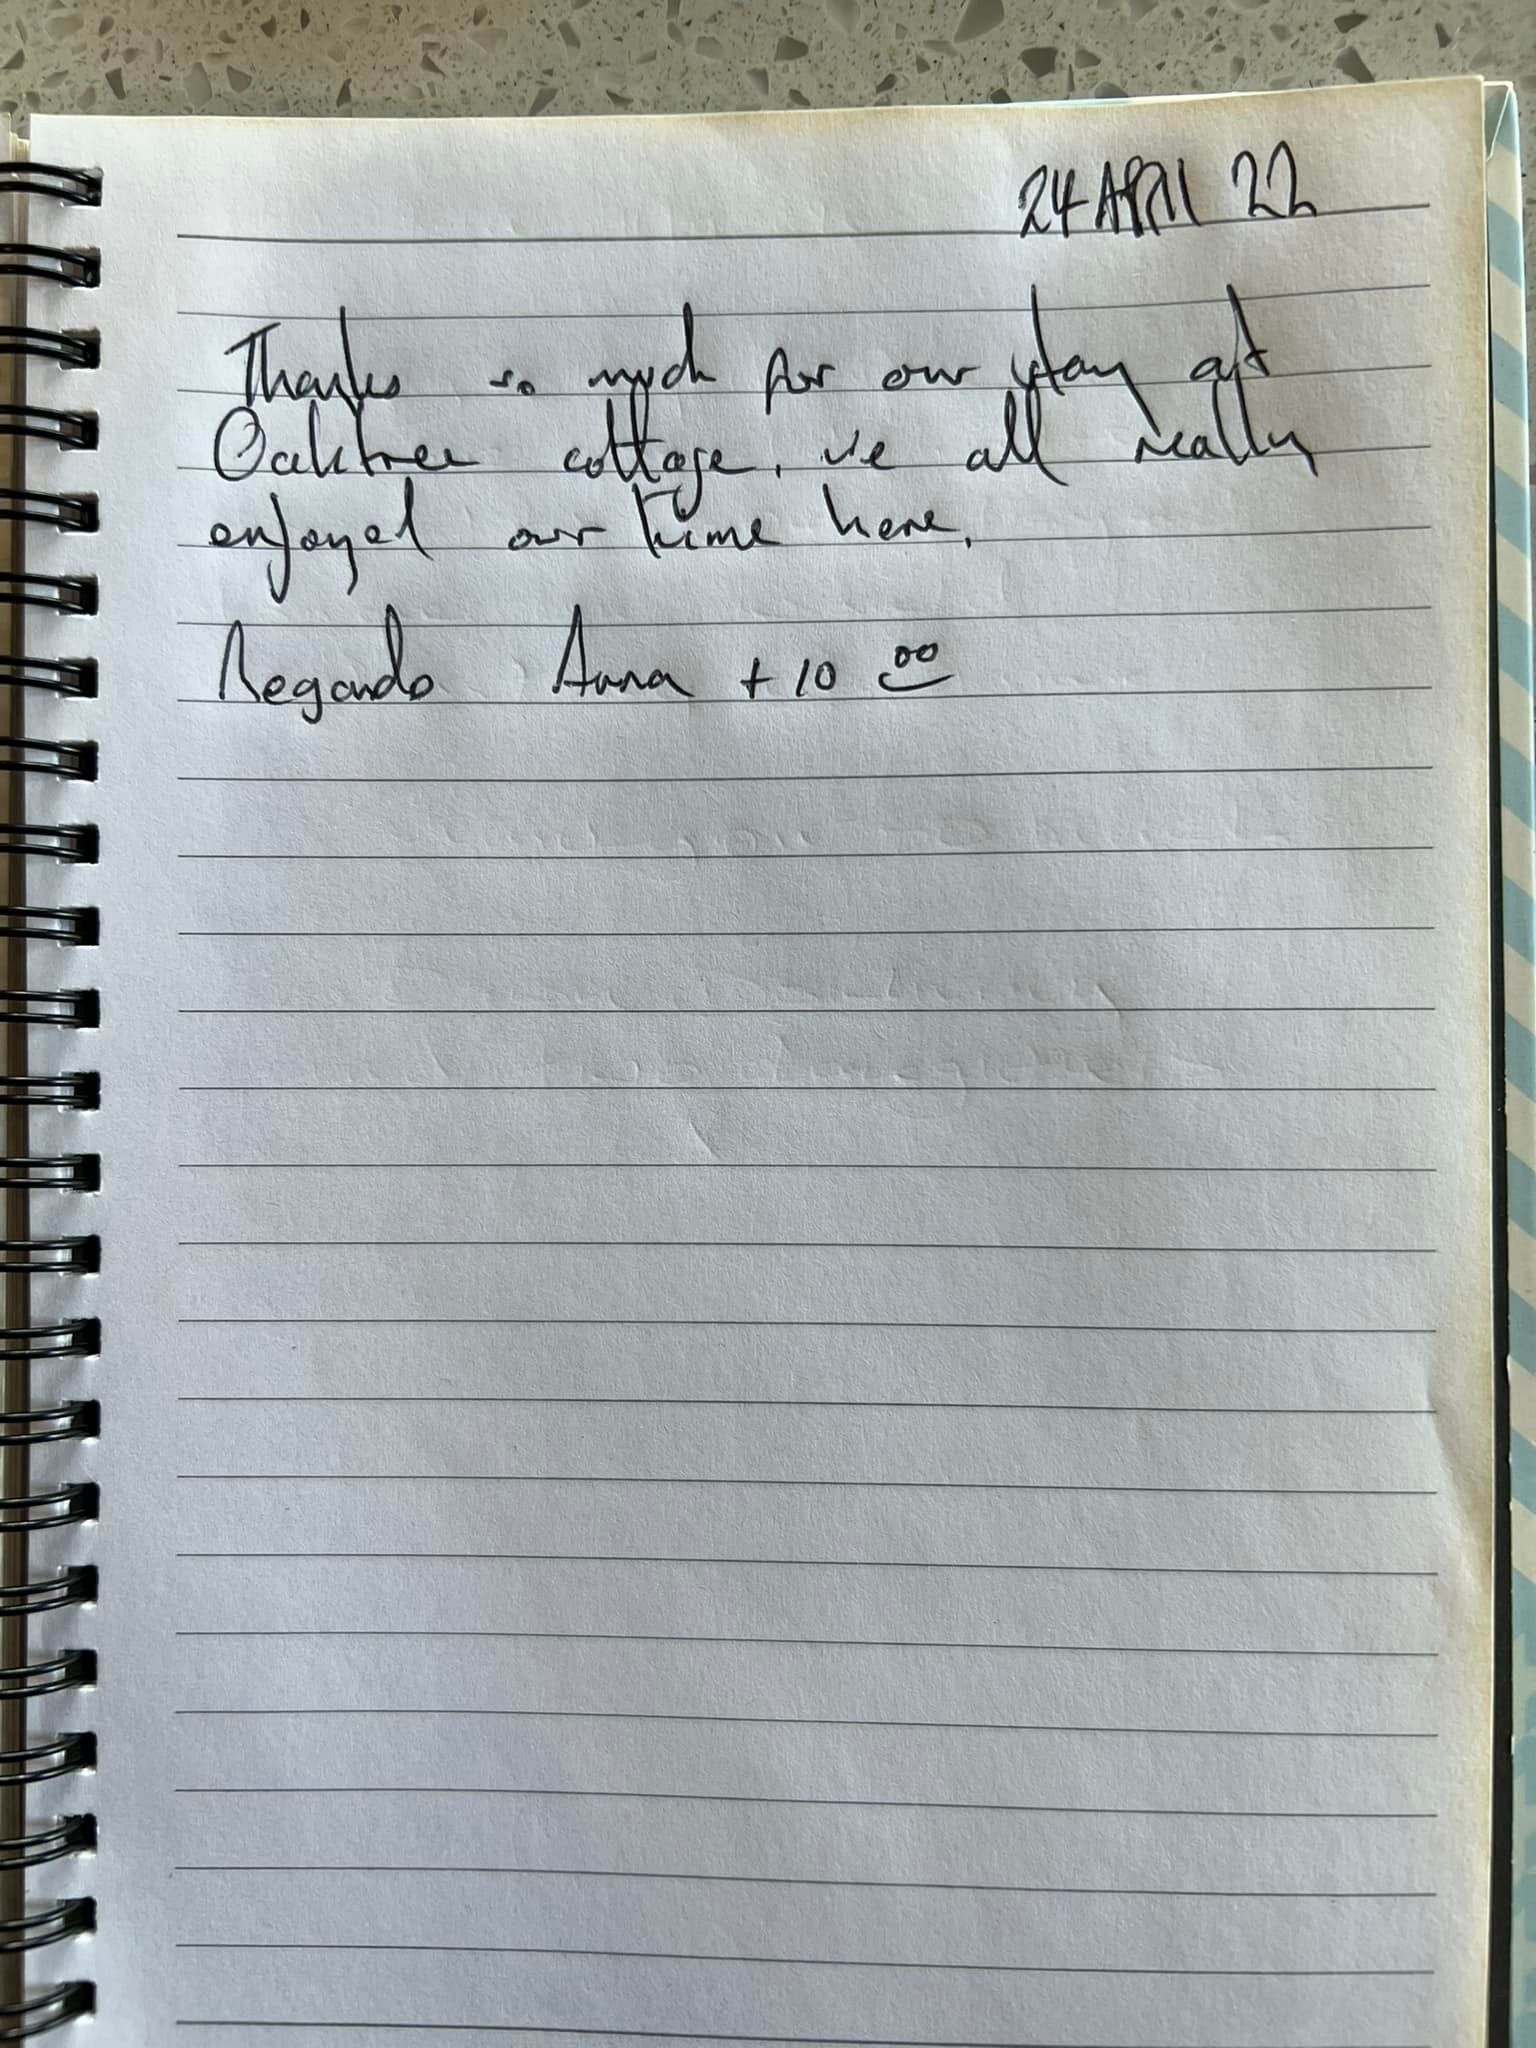 24 APRIL 22
Thanks so much for our stay at
Oaktree cottage, we all really
enjoyed our time here.
Regards Anna + 10